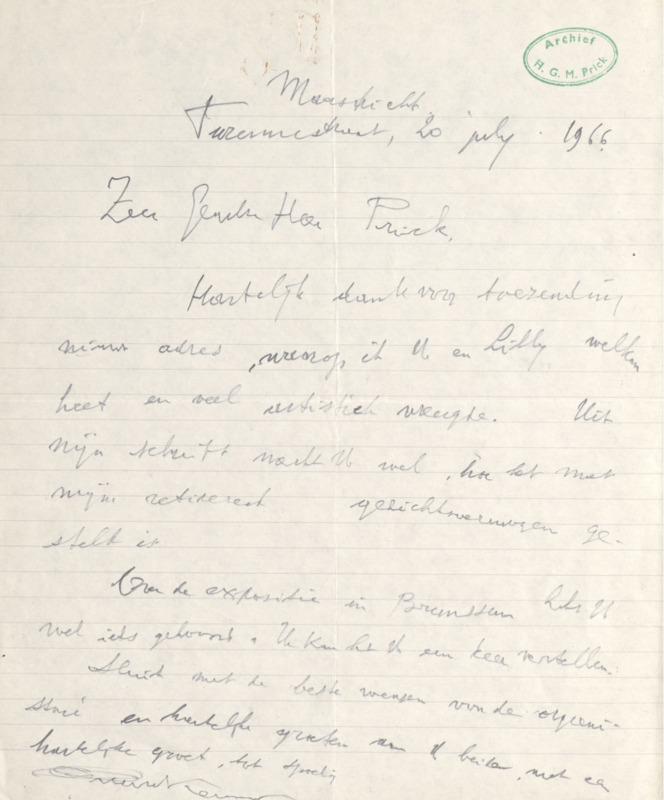 Archief
H. G. M. Prick
Maastricht,
Turennestraat, 20 july 1966.
Zeer Geachte Heer Prick,
Hartelijk dank voor toezending
nieuw adres, waarop ik U en Libby welkom
heet en veel artistich vreugde. Uit
mijn schrift merkt U wel, hoe het met
mijn gezichtsvermogen ge-
steld is
Over de expositie in Brunssum heb U
wel iets gehoord. Ik kan het U een keer vertellen.
Sluit met de beste wensen voor de organi-
satie en hartelijke groeten aan U beiden, met een
hartelijke groet, tot spoedig